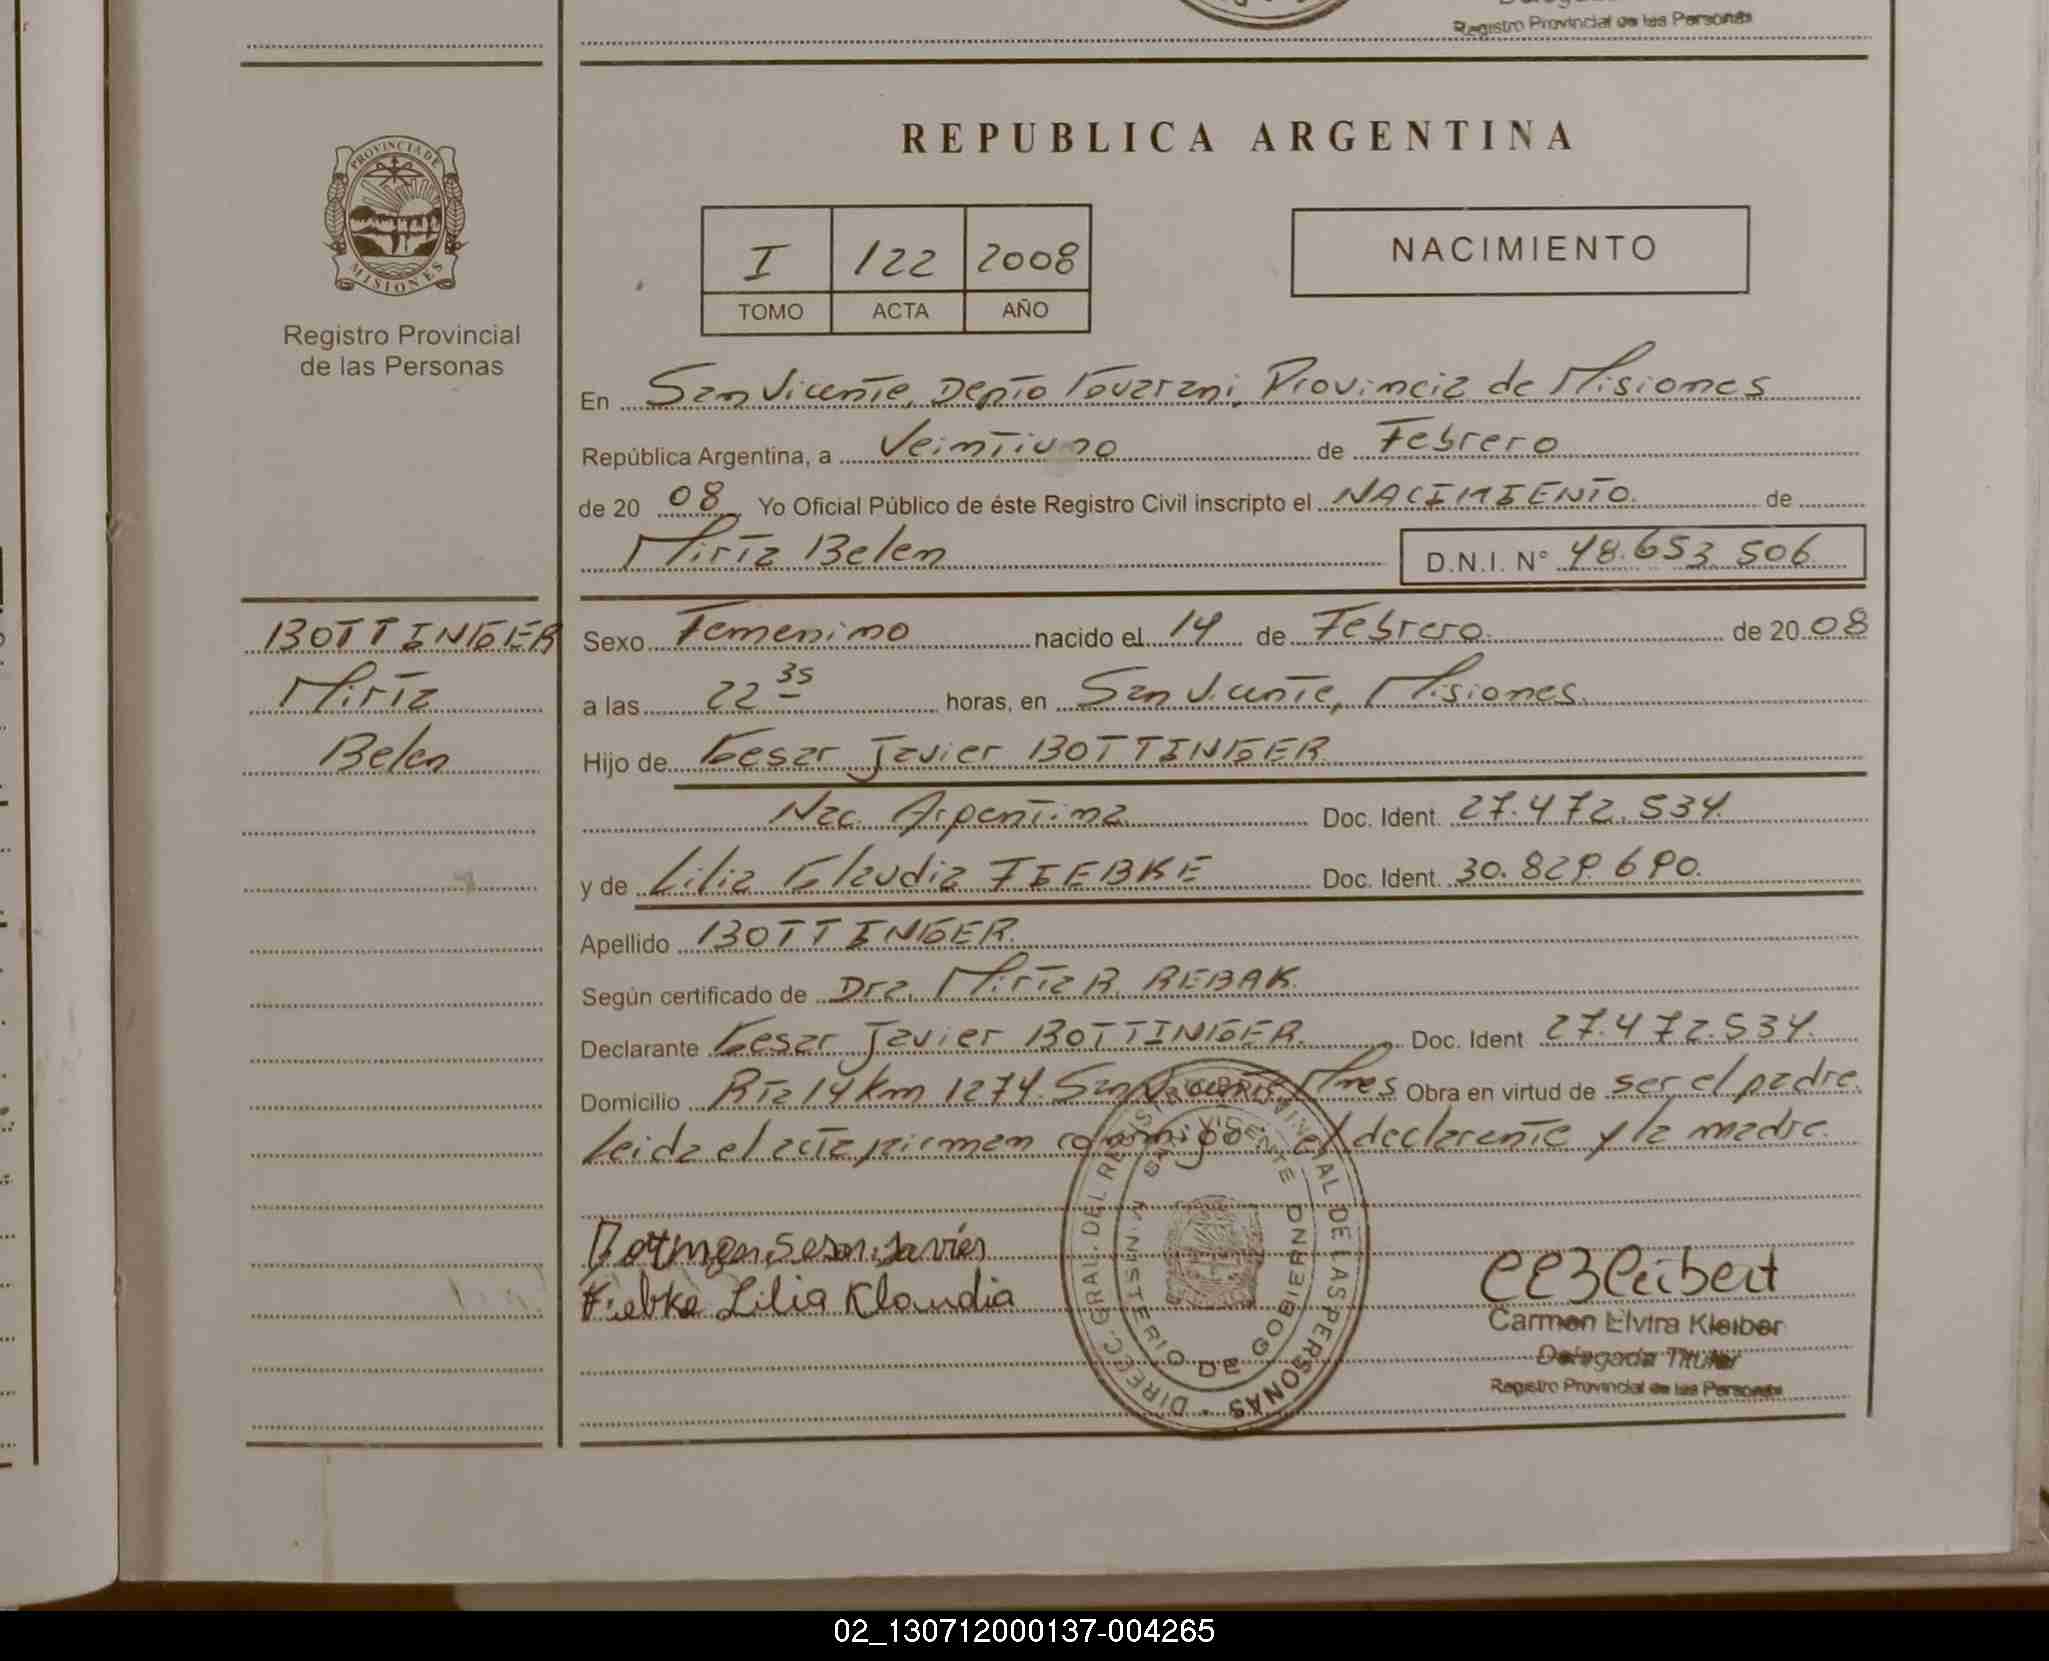 Registro Provincial de las Personas
PROVINCIA DE
MISIONES
Registro Provincial
de las Personas
REPUBLICA ARGENTINA
I 122 2008
TOMO ACTA AÑO
NACIMIENTO
En San Vicente, Depto Guarani, Provincia de Misiones
República Argentina, a Veintiuno de Febrero
de 20 08 Yo Oficial Público de éste Registro Civil inscripto el NACIMIENTO. de
Mirta Belen D.N.I. N° 48.653.506
BOTTINGER
Mirta
Belen
Sexo Femenino nacido el 14 de Febrero. de 20 08
a las 22 35 horas, en San Vicente, Misiones.
Hijo de Cesar Javier BOTTINGER
Nac. Argentina Doc. Ident. 27.472.534.
y de Lilia Claudia FIEBKE Doc. Ident. 30.829.690.
Apellido BOTTINGER.
Según certificado de Dra. Mirta R. REBAK.
Declarante Cesar Javier BOTTINGER. Doc. Ident 27.472.534.
Domicilio Rta 14 km 1274. San Vicente, Mnes Obra en virtud de ser el padre.
Leida el acta firman conmigo el declarante y la madre.
Fiebke Lilia Klaudia
DIRECC. GRAL. DEL REGISTRO PROVINCIAL DE LAS PERSONAS
SAN VICENTE
MINISTERIO DE GOBIERNO
Carmen Elvira Kleiber
Delegada Titular
Registro Provincial de las Personas
02_130712000137-004265